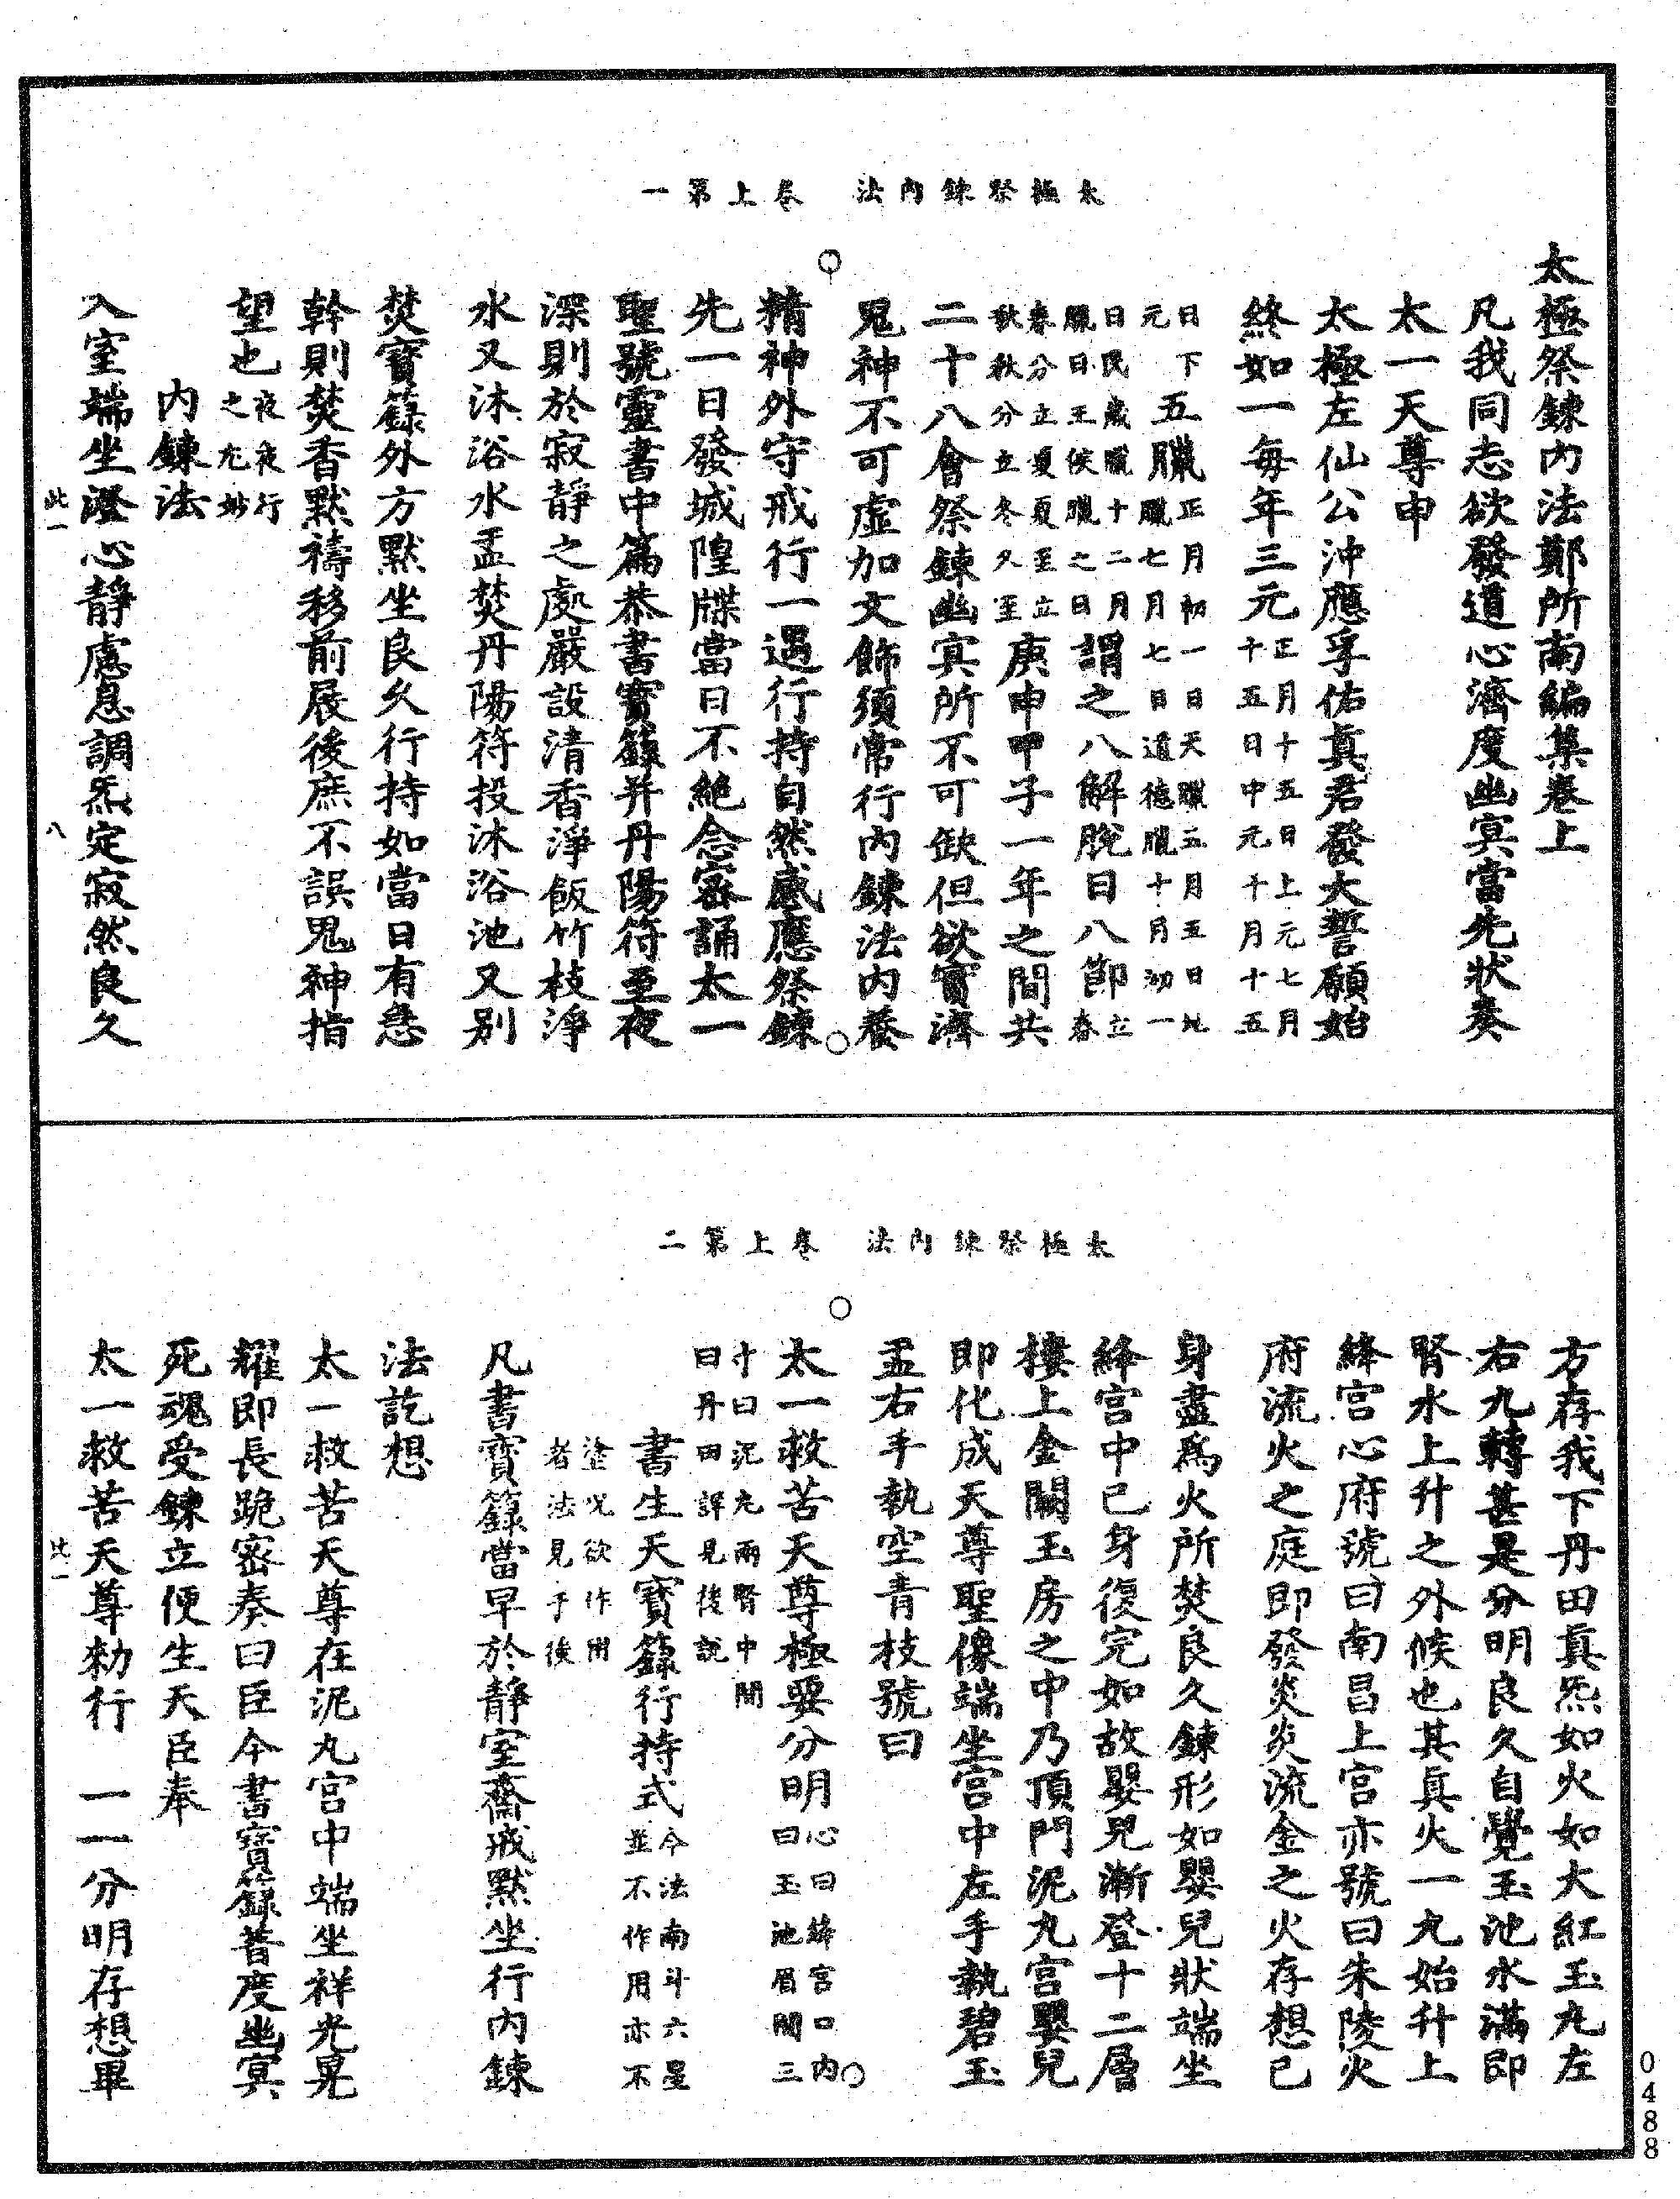 太極祭鍊內法　卷上第一
太極祭鍊內法鄭所南編集卷上
凡我同志欲發道心濟度幽冥當先狀奏
太一天尊申
太極左仙公沖應孚佑眞君發大誓願始
終如一每年三元正月十五日上元七月十五日中元十月十五
日下元五臘正月初一日天臘五月五日地臘七月七日道德臘十月初一
日民歲臘十二月臘日王侯臘之日謂之八解脫日八節立春
春分立夏夏至立秋秋分立冬久至庚申甲子一年之間共
二十八會祭鍊幽冥所不可缺但欲實濟
鬼神不可虛加文飾須常行內鍊法內養
精神外守戒行一遇行持自然感應祭鍊
先一日發城隍牒當日不絕念密誦太一
聖號靈書中篇恭書寶籙并丹陽符至夜
深則於寂靜之處嚴設清香淨飯竹枝淨
水又沐浴水盂焚丹陽符投沐浴池又别
焚寶籙外方默坐良久行持如當日有急
幹則焚香默禱移前展後庶不誤鬼神指
望也夜夜行之尤妙
內鍊法
入室端坐澄心靜慮息調炁定寂然良久
此一
八
太極祭鍊內法　卷上第二
方存我下丹田眞炁如火如大紅玉丸左
右九轉甚是分明良久自覺玉池水滿即
腎水上升之外候也其眞火一丸始升上
絳宮心府號曰南昌上宮亦號曰朱陵火
府流火之庭即發炎炎流金之火存想己
身盡爲火所焚良久鍊形如嬰兒狀端坐
絳宮中己身復完如故嬰兒漸登十二層
樓上金闕玉房之中乃頂門泥丸宮嬰兒
即化成天尊聖像端坐宮中左手執碧玉
盂右手執空青枝號曰
太一救苦天尊極要分明心曰絳宮口內曰玉池眉間三
寸曰泥丸兩腎中間曰丹田詳見後說
書生天寶籙行持式今法南斗六星並不作用亦不
塗炁欲作用者法見于後
凡書寶籙當早於靜室齋戒默坐行內鍊
法訖想
太一救苦天尊在泥丸宮中端坐祥光晃
耀即長跪密奏曰臣今書寶籙普度幽冥
死魂受鍊立便生天臣奉
太一救苦天尊勑行　一一分明存想畢
此一
0488